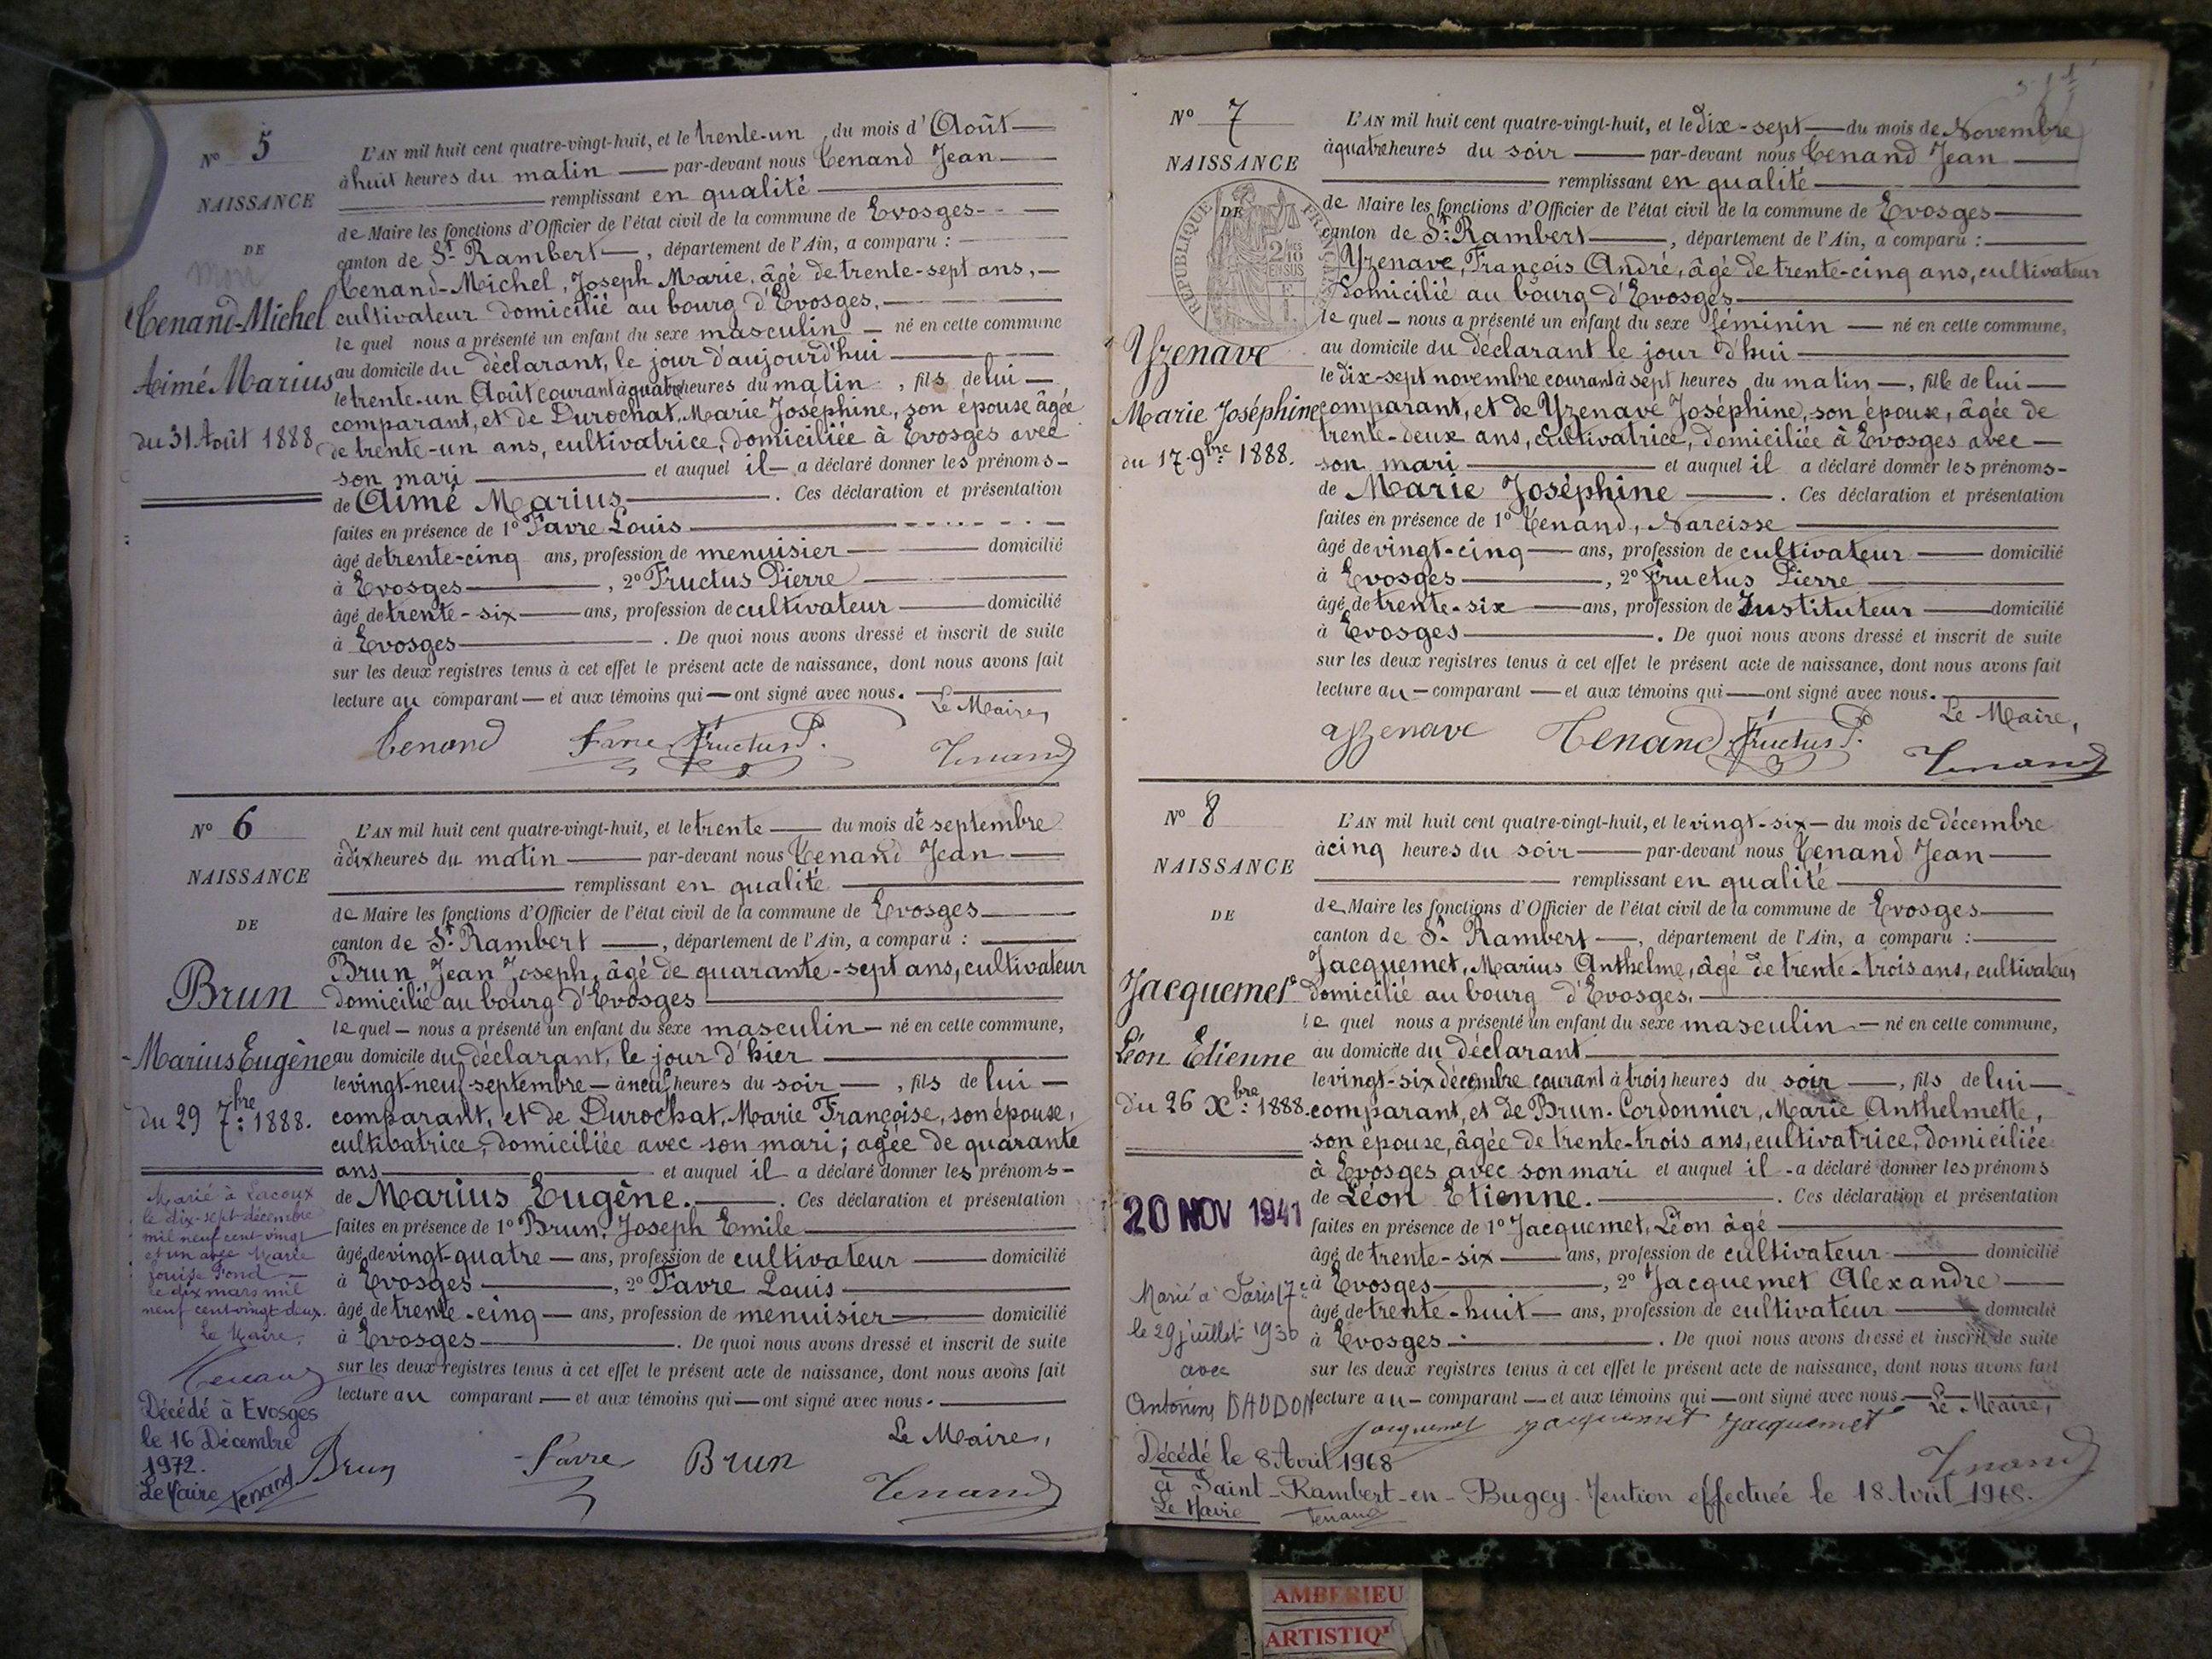 N° 5
NAISSANCE
DE
mon
Tenand-Michel
Aimé Marius
du 31 Août 1888
L'AN mil huit cent quatre-vingt-huit, et le trente-un du mois d'Août
à huit heures du matin par-devant nous Tenand Jean
remplissant en qualité
de Maire les fonctions d'Officier de l'état civil de la commune de Evosges
canton de St Rambert, département de l'Ain, a comparu :
Tenand-Michel, Joseph Marie, âgé de trente-sept ans,
cultivateur domicilié au bourg d'Evosges,
le quel nous a présenté un enfant du sexe masculin né en cette commune
au domicile du déclarant, le jour d'aujourd'hui
le trente-un Août courant à quatre heures du matin, fils de lui
comparant, et de Durochat, Marie Joséphine, son épouse âgée
de trente-un ans, cultivatrice, domiciliée à Evosges avec
son mari et auquel il a déclaré donner les prénoms
de Aimé Marius. Ces déclaration et présentation
faites en présence de 1° Favre Louis
âgé de trente-cinq ans, profession de menuisier domicilié
à Evosges, 2° Fructus Pierre
âgé de trente-six ans, profession de cultivateur domicilié
à Evosges. De quoi nous avons dressé et inscrit de suite
sur les deux registres tenus à cet effet le présent acte de naissance, dont nous avons fait
lecture au comparant et aux témoins qui ont signé avec nous.
Le Maire,
Tenand Favre Fructus P. Tenand
N° 6
NAISSANCE
DE
Brun
Marius Eugène
du 29 7bre 1888.
Marié à Lacoux
le dix-sept décembre
mil neuf cent vingt
et un avec Marie
Louise Pond
le dix mars mil
neuf cent vingt deux.
Le Maire,
Tenand
Décédé à Evosges
le 16 Décembre
1972.
Le Maire Tenand
L'AN mil huit cent quatre-vingt-huit, et le trente du mois de septembre
à dix heures du matin par-devant nous Tenand Jean
remplissant en qualité
de Maire les fonctions d'Officier de l'état civil de la commune de Evosges
canton de St Rambert, département de l'Ain, a comparu :
Brun Jean Joseph, âgé de quarante-sept ans, cultivateur
domicilié au bourg d'Evosges
le quel nous a présenté un enfant du sexe masculin né en cette commune,
au domicile du déclarant, le jour d'hier
le vingt-neuf septembre à neuf heures du soir, fils de lui
comparant, et de Durochat, Marie Françoise, son épouse,
cultivatrice, domiciliée avec son mari; agée de quarante
ans et auquel il a déclaré donner les prénoms
de Marius Eugène. Ces déclaration et présentation
faites en présence de 1° Brun, Joseph Emile
âgé de vingt-quatre ans, profession de cultivateur domicilié
à Evosges, 2° Favre Louis
âgé de trente-cinq ans, profession de menuisier domicilié
à Evosges. De quoi nous avons dressé et inscrit de suite
sur les deux registres tenus à cet effet le présent acte de naissance, dont nous avons fait
lecture au comparant et aux témoins qui ont signé avec nous.
Le Maire,
Brun Favre Brun Tenand
N° 7
NAISSANCE
DE
RÉPUBLIQUE FRANÇAISE
2/10 EN SUS
Yzenave
Marie Joséphine
du 17 9bre 1888.
L'AN mil huit cent quatre-vingt-huit, et le dix-sept du mois de Novembre
à quatre heures du soir par-devant nous Tenand Jean
remplissant en qualité
de Maire les fonctions d'Officier de l'état civil de la commune de Evosges
canton de St Rambert, département de l'Ain, a comparu :
Yzenave, François André, âgé de trente-cinq ans, cultivateur
domicilié au bourg d'Evosges
le quel nous a présenté un enfant du sexe féminin né en cette commune,
au domicile du déclarant le jour d'hui
le dix-sept novembre courant à sept heures du matin, fille de lui
comparant, et de Yzenave Joséphine, son épouse, âgée de
trente-deux ans, cultivatrice, domiciliée à Evosges avec
son mari et auquel il a déclaré donner les prénoms
de Marie Joséphine. Ces déclaration et présentation
faites en présence de 1° Tenand, Narcisse
âgé de vingt-cinq ans, profession de cultivateur domicilié
à Evosges, 2° Fructus Pierre
âgé de trente-six ans, profession de Instituteur domicilié
à Evosges. De quoi nous avons dressé et inscrit de suite
sur les deux registres tenus à cet effet le présent acte de naissance, dont nous avons fait
lecture au comparant et aux témoins qui ont signé avec nous.
Le Maire,
Yzenave Tenand Fructus P. Tenand
N° 8
NAISSANCE
DE
Jacquemet
Léon Etienne
du 26 Xbre 1888.
20 NOV 1941
Marié à Paris 17e
le 29 juillet 1930
avec
Antonine DAUDON
L'AN mil huit cent quatre-vingt-huit, et le vingt-six du mois de décembre
à cinq heures du soir par-devant nous Tenand Jean
remplissant en qualité
de Maire les fonctions d'Officier de l'état civil de la commune de Evosges
canton de St Rambert, département de l'Ain, a comparu :
Jacquemet, Marius Anthelme, âgé de trente-trois ans, cultivateur
domicilié au bourg d'Evosges.
le quel nous a présenté un enfant du sexe masculin né en cette commune,
au domicile du déclarant
le vingt-six décembre courant à trois heures du soir, fils de lui
comparant, et de Brun-Cordonnier, Marie Anthelmette,
son épouse, âgée de trente-trois ans, cultivatrice, domiciliée
à Evosges avec son mari et auquel il a déclaré donner les prénoms
de Léon Etienne. Ces déclaration et présentation
faites en présence de 1° Jacquemet, Léon âgé
âgé de trente-six ans, profession de cultivateur domicilié
à Evosges, 2° Jacquemet Alexandre
âgé de trente-huit ans, profession de cultivateur domicilié
à Evosges. De quoi nous avons dressé et inscrit de suite
sur les deux registres tenus à cet effet le présent acte de naissance, dont nous avons fait
lecture au comparant et aux témoins qui ont signé avec nous. Le Maire,
Jacquemet Jacquemet Jacquemet Tenand
Décédé le 8 Avril 1968
à Saint-Rambert-en-Bugey. Mention effectuée le 18 Avril 1968.
Le Maire Tenand
AMBERIEU
ARTISTIQ